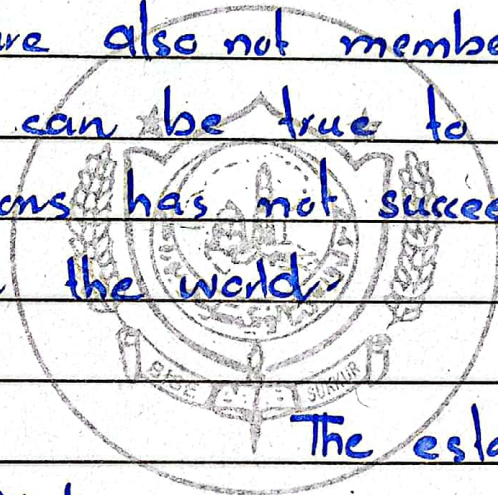 are also not membe
can be true to
ons has not succee
the world.
BISE SUKKUR
The esta